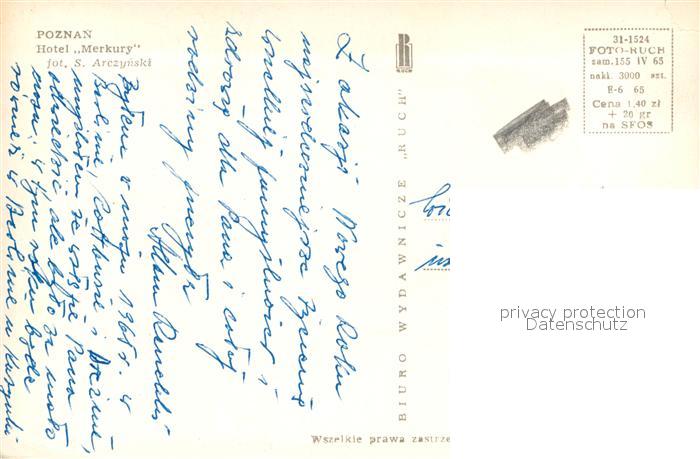 POZNAŃ
Hotel „Merkury"
fot. S. Arczyński
RUCH
31-1524
FOTO-RUCH
zam. 155 IV 65
nakł. 3000 szt.
E-6 65
Cena 1,40 zł
+ 20 gr
na SFOS
BIURO WYDAWNICZE „RUCH"
Wszelkie prawa zastrze
Z okazji Nowego Roku
najserdeczniejsze życzenia
wszelkiej pomyślności i
zdrowia dla Pana i całej
rodziny
Adam
Byłem w maju 1965 r. w
Berlinie, Cottbus i
myślałem że wstąpię Pana
odwiedzić, ale było za mało
czasu. W tym roku będę
również w Berlinie w
privacy protection
Datenschutz